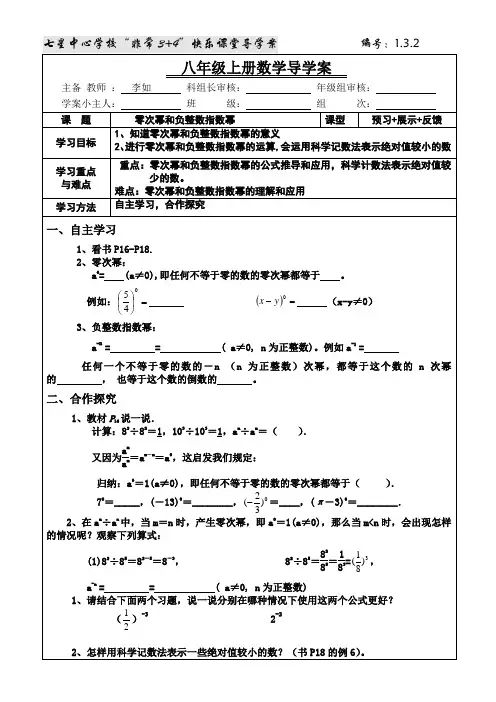 七星中心学校“非常3+4”快乐课堂导学案 编号：1.3.2
八年级上册数学导学案
主备 教师 ： 李如 科组长审核： 年级组审核：
学案小主人： 班 级： 组 次：
课 题 零次幂和负整数指数幂 课型 预习+展示+反馈
学习目标 1、知道零次幂和负整数指数幂的意义
2、进行零次幂和负整数指数幂的运算,会运用科学记数法表示绝对值较小的数
学习重点与难点 重点：零次幂和负整数指数幂的公式推导和应用，科学计数法表示绝对值较少的数。
难点：零次幂和负整数指数幂的理解和应用
学习方法 自主学习，合作探究
一、自主学习
1、看书P16-P18.
2、零次幂：
a⁰=____ (a≠0),即任何不等于零的数的零次幂都等于 。
例如：(5/4)⁰ = ______ (x-y)⁰ = _____ （x-y≠0）
3、负整数指数幂：
a⁻ⁿ = ________ = __________ ( a≠0, n为正整数)。例如a⁻¹ = ______
任何一个不等于零的数的－n （n 为正整数）次幂，都等于这个数的 n 次幂
的________ ， 也等于这个数的倒数的______ 。
二、合作探究
1、教材 说一说．
又因为aᵐ/aⁿ＝aᵐ⁻ⁿ＝a⁰，这启发我们规定：
归纳：a⁰＝1(a≠0)，即任何不等于零的数的零次幂都等于（ ）．
7⁰＝_____，(－13)⁰＝________，(−2/3)⁰＝____，(π－3)⁰＝________．
2、在aᵐ÷aⁿ中，当m＝n时，产生零次幂，即a⁰＝1(a≠0)，那么当m<n时，会出现怎样
的情况呢？观察下列算式：
a⁻ⁿ = ________ = __________ ( a≠0, n为正整数)
1、请结合下面两个习题，说一说分别在哪种情况下使用这两个公式更好？
（1/2）⁻³ 2⁻³
2、怎样用科学记数法表示一些绝对值较小的数？(书P18的例6)。